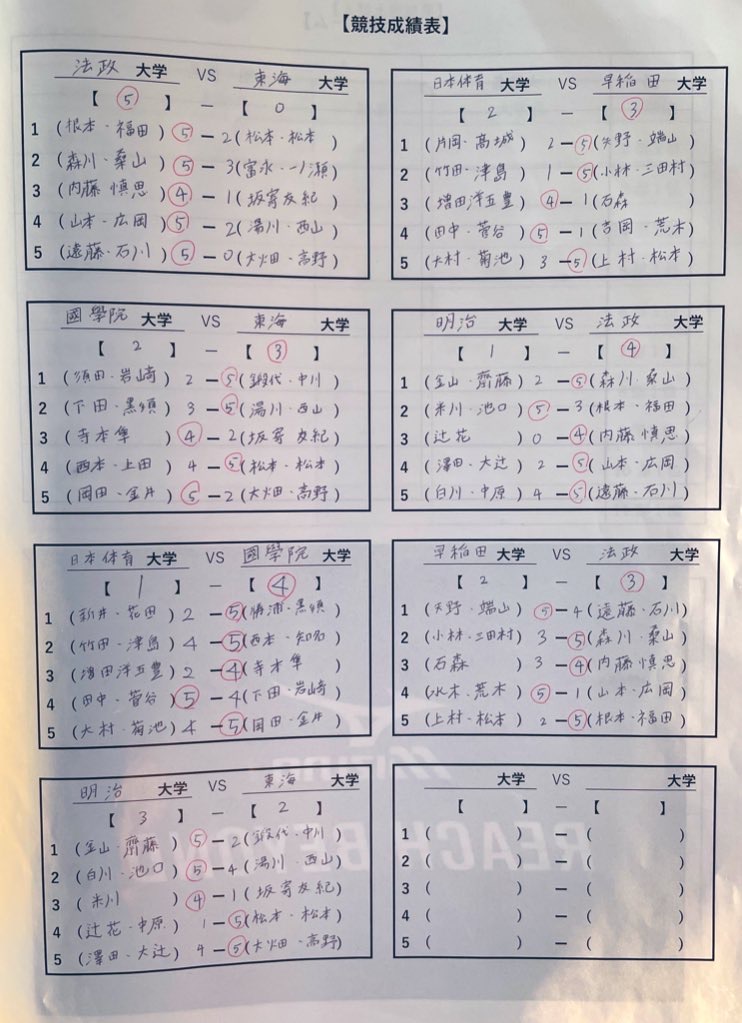 【競技成績表】
法政 大学 VS 東海 大学
【 5 】 － 【 0 】
1 (根本・福田) 5 － 2 (松本・松本)
2 (森川・桑山) 5 － 3 (富永・一ノ瀬)
3 (内藤 慎思) 4 － 1 (坂寄友紀)
4 (山本・広岡) 5 － 2 (湯川・西山)
5 (遠藤・石川) 5 － 0 (大畑・高野)
日本体育 大学 VS 早稲田 大学
【 2 】 － 【 3 】
1 (片岡・高城) 2 － 5 (矢野・端山)
2 (竹田・津島) 1 － 5 (小林・三田村)
3 (増田洋五豊) 4 － 1 (石森)
4 (田中・菅谷) 5 － 1 (吉岡・荒木)
5 (大村・菊池) 3 － 5 (上村・松本)
國學院 大学 VS 東海 大学
【 2 】 － 【 3 】
1 (須田・岩崎) 2 － 5 (鍛代・中川)
2 (下田・黒須) 3 － 5 (湯川・西山)
3 (寺本隼) 4 － 2 (坂寄 友紀)
4 (西本・上田) 4 － 5 (松本・松本)
5 (岡田・金井) 5 － 2 (大畑・高野)
明治 大学 VS 法政 大学
【 1 】 － 【 4 】
1 (金山・齋藤) 2 － 5 (森川・桑山)
2 (米川・池口) 5 － 3 (根本・福田)
3 (辻花) 0 － 4 (内藤 慎思)
4 (澤田・大辻) 2 － 5 (山本・広岡)
5 (白川・中原) 4 － 5 (遠藤・石川)
日本体育 大学 VS 國學院 大学
【 1 】 － 【 4 】
1 (新井・花田) 2 － 5 (勝浦・黒須)
2 (竹田・津島) 4 － 5 (西本・知名)
3 (増田洋五豊) 2 － 4 (寺本隼)
4 (田中・菅谷) 5 － 4 (下田・岩崎)
5 (大村・菊池) 4 － 5 (岡田・金井)
早稲田 大学 VS 法政 大学
【 2 】 － 【 3 】
1 (矢野・端山) 5 － 4 (遠藤・石川)
2 (小林・三田村) 3 － 5 (森川・桑山)
3 (石森) 3 － 4 (内藤 慎思)
4 (水木・荒木) 5 － 1 (山本・広岡)
5 (上村・松本) 2 － 5 (根本・福田)
明治 大学 VS 東海 大学
【 3 】 － 【 2 】
1 (金山・齋藤) 5 － 2 (鍛代・中川)
2 (白川・池口) 5 － 4 (湯川・西山)
3 (米川) 4 － 1 (坂寄友紀)
4 (辻花・中原) 1 － 5 (松本・松本)
5 (澤田・大辻) 4 － 5 (大畑・高野)
大学 VS 大学
【 】 － 【 】
1 ( ) － ( )
2 ( ) － ( )
3 ( ) － ( )
4 ( ) － ( )
5 ( ) － ( )